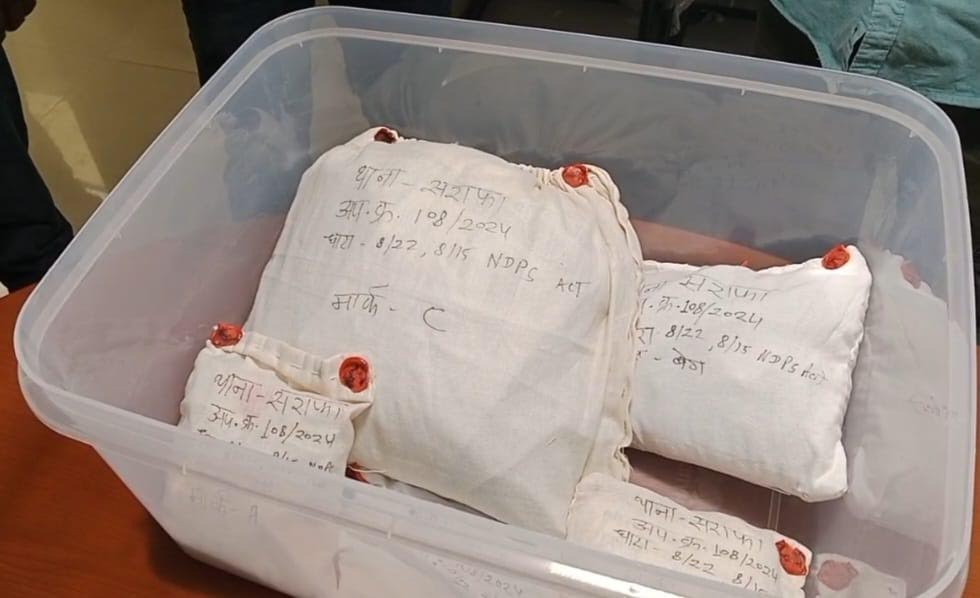 थाना - सराफा
अप. क्र. 108/2024
धारा - 8/22, 8/15 NDPS ACT
मार्क - C
सराफा
. क्र. 108/2024
8/22, 8/15 NDPS Act
- बैग
थाना - सराफा
अप. क्र. 108/2024
8/15 NDPS
मार्क - A
थाना - सराफा
अप. क्र. 108/2024
धारा - 8/22 8/15
108/2024